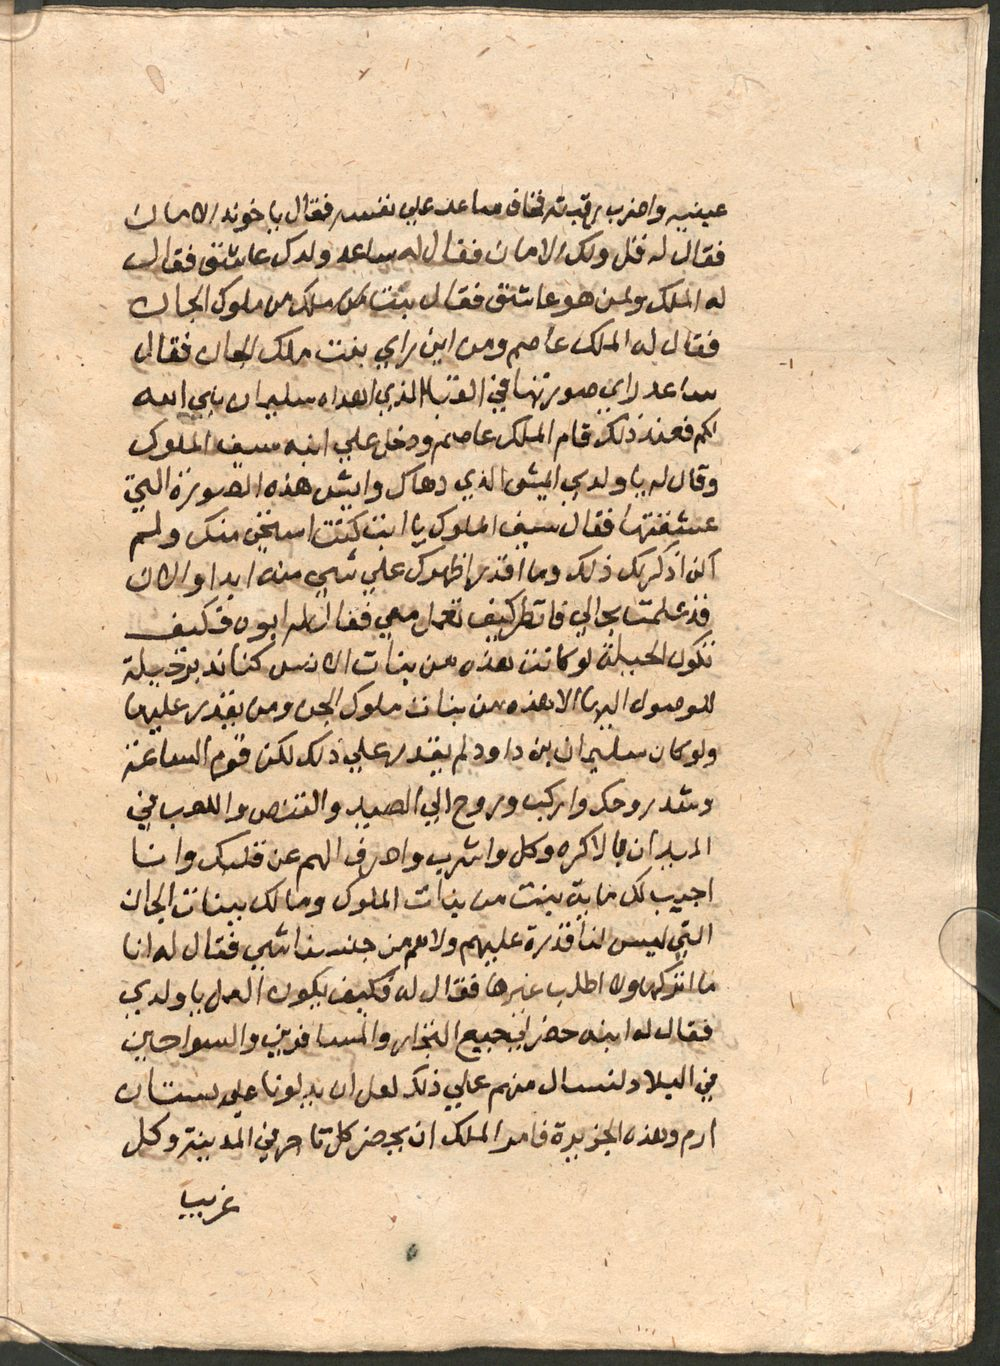 عينيه واضرب رقبته فخاف ساعد علي نفسه فقال يا خوند الامان
فقال له قل ولك الامان فقال له ساعد ولدك عاشق فقال
له الملك ولمن هو عاشق فقال بنت ملك من ملوك الجان
فقال له الملك عاصم ومن اين راي بنت ملك الجان فقال
ساعد راي صورتها في القبا الذي اهداه سليمان نبي الله
لكم فعند ذلك قام الملك عاصم ودخل علي ابنه سيف الملوك
وقال له يا ولدي ايش الذي دهاك وايش هذه الصورة التي
عشقتها فقال سيف الملوك يا ابت كنت استحي منك ولم
اكن اذكر لك ذلك وما اقدر اظهرك علي شي منه ابدا والان
قد علمت بحالي فانظر كيف تعمل معي فقال له ابوه فكيف
تكون الحيلة لو كانت هذه من بنات الانس كنا ندبر حيلة
للوصول اليها الا هذه من بنات ملوك الجن ومن يقدر عليها
ولو كان سليمان بن داود لم يقدر علي ذلك لكن قوم الساعة
وشد روحك واركب وروح الي الصيد والقنص واللعب في
الميدان بالاكره وكل واشرب واصرف الهم عن قلبك وانا
اجيب لك ماية بنت من بنات الملوك ومالك ببنات الجان
التي ليس لنا قدرة عليهم ولا هم من جنسنا شي فقال له انا
ما اتركها ولا اطلب غيرها فقال له فكيف يكون العمل يا ولدي
فقال له ابنه حضر لي جميع التجار والمسافرين والسواحين
في البلاد لنسال منهم علي ذلك لعل ان يدلونا علي بستان
ارم وهذه الجزيرة فامر الملك ان يحضر كل تاجر في المدينة وكل
غريب